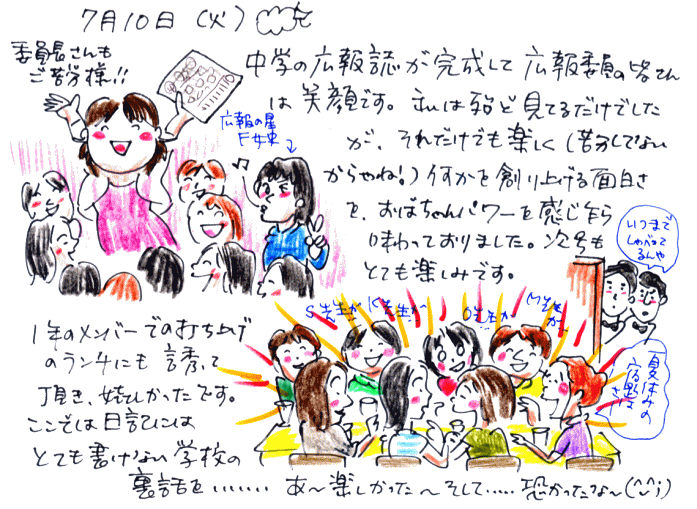 7月10日(火)
委員長さんも
ご苦労様!!
中学の広報誌が完成して広報委員の皆さん
は笑顔です。私は殆ど見てるだけでした
が、それだけでも楽しく(苦労してない
からやね!)何かを創り上げる面白さ
を、おばちゃんパワーを感じ乍ら
味わっておりました。次号も
とても楽しみです。
広報の星
F女史
いつまで
しゃべって
るんや
S先生が
K先生が
O先生が
M先生が
夏休みの
宿題がさ
1年のメンバーでの打ち上げ
のランチにも誘って
頂き、嬉しかったです。
ここでは日記には
とても書けない学校の
裏話を・・・・・・・あ〜楽しかった〜そして・・・・・恐かったな〜(^_^;)